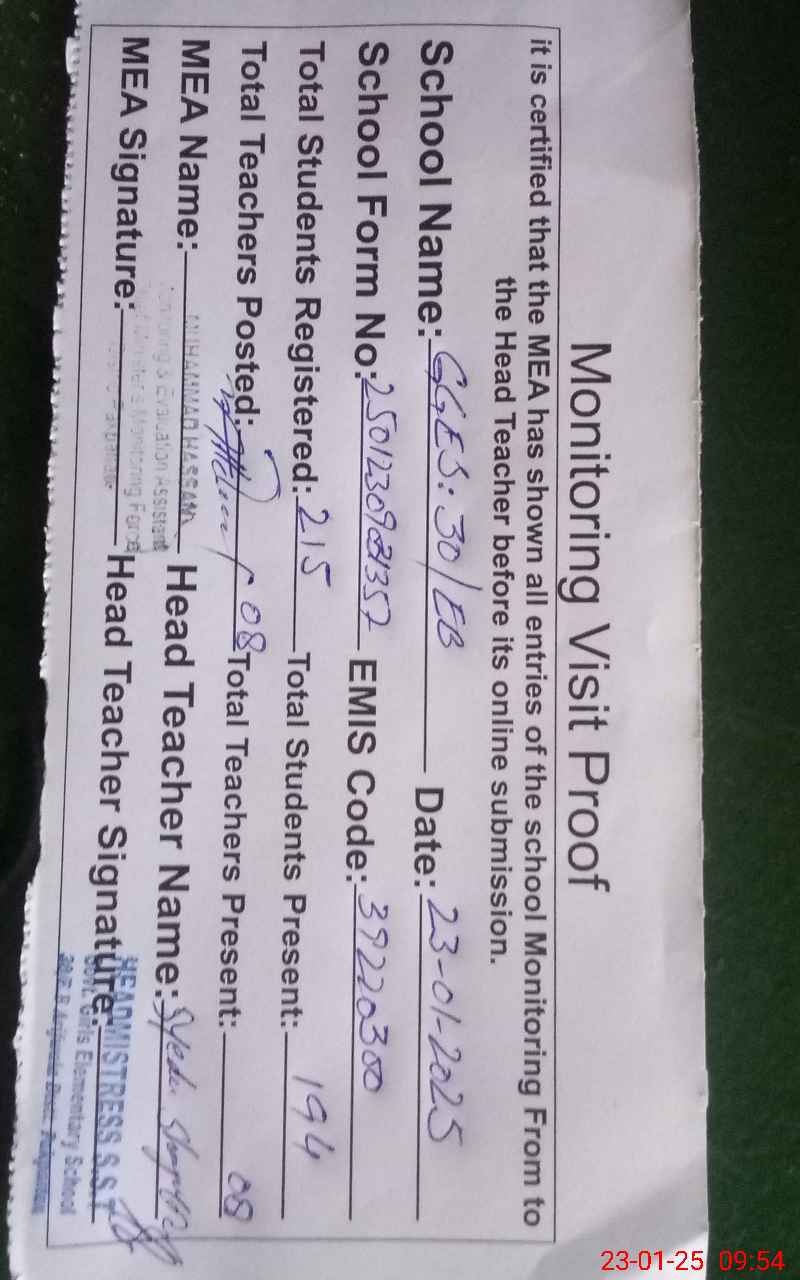 Monitoring Visit Proof
it is certified that the MEA has shown all entries of the school Monitoring From to
the Head Teacher before its online submission.
School Name: GGES: 30/EB Date: 23-01-2025
School Form No: EMIS Code: 39220300
Total Students Registered: 215 Total Students Present: 194
Total Teachers Posted: 08 Total Teachers Present: 08
MEA Name: MUHAMMAD HASSAM Head Teacher Name: Syeda
Monitoring & Evaluation Assistant
Chief Minister's Monitoring Force
MEA Signature: Head Teacher Signature:
HEADMISTRESS S.S.T
Govt. Girls Elementary School
30/E.B Arifwala Distt. Pakpattan
23-01-25 09:54